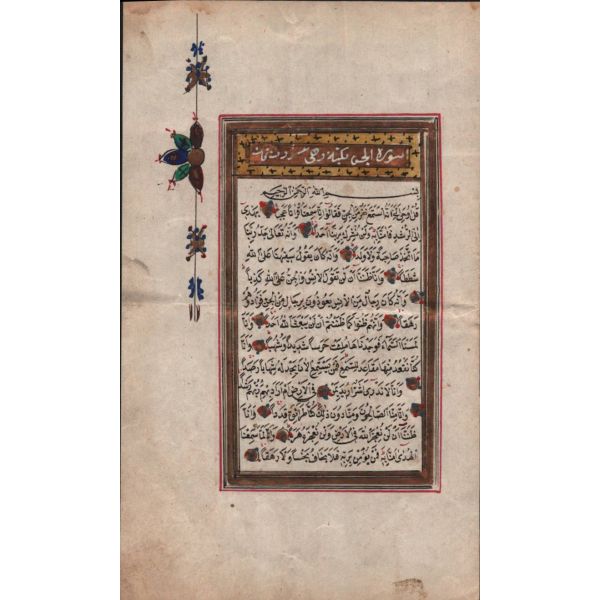 سورة الجن مكية وهى عشرون وثمان
بسم الله الرحمن الرحيم
قل اوحى الى انه استمع نفر من الجن فقالوا انا سمعنا قرانا عجبا يهدى
الى الرشد فامنا به ولن نشرك بربنا احدا وانه تعالى جد ربنا
ما اتخذ صاحبة ولا ولدا وانه كان يقول سفيهنا على الله
شططا وانا ظننا ان لن تقول الانس والجن على الله كذبا
وانه كان رجال من الانس يعوذون برجال من الجن فزادوهم
رهقا وانهم ظنوا كما ظننتم ان لن يبعث الله احدا وانا
لمسنا السماء فوجدناها ملئت حرسا شديدا وشهبا وانا
كنا نقعد منها مقاعد للسمع فمن يستمع الان يجد له شهابا رصدا
وانا لا ندرى اشر اريد بمن فى الارض ام اراد بهم ربهم رشدا
وانا منا الصالحون ومنا دون ذلك كنا طرائق قددا وانا
ظننا ان لن نعجز الله فى الارض ولن نعجزه هربا وانا لما سمعنا
الهدى امنا به فمن يؤمن بربه فلا يخاف بخسا ولا رهقا